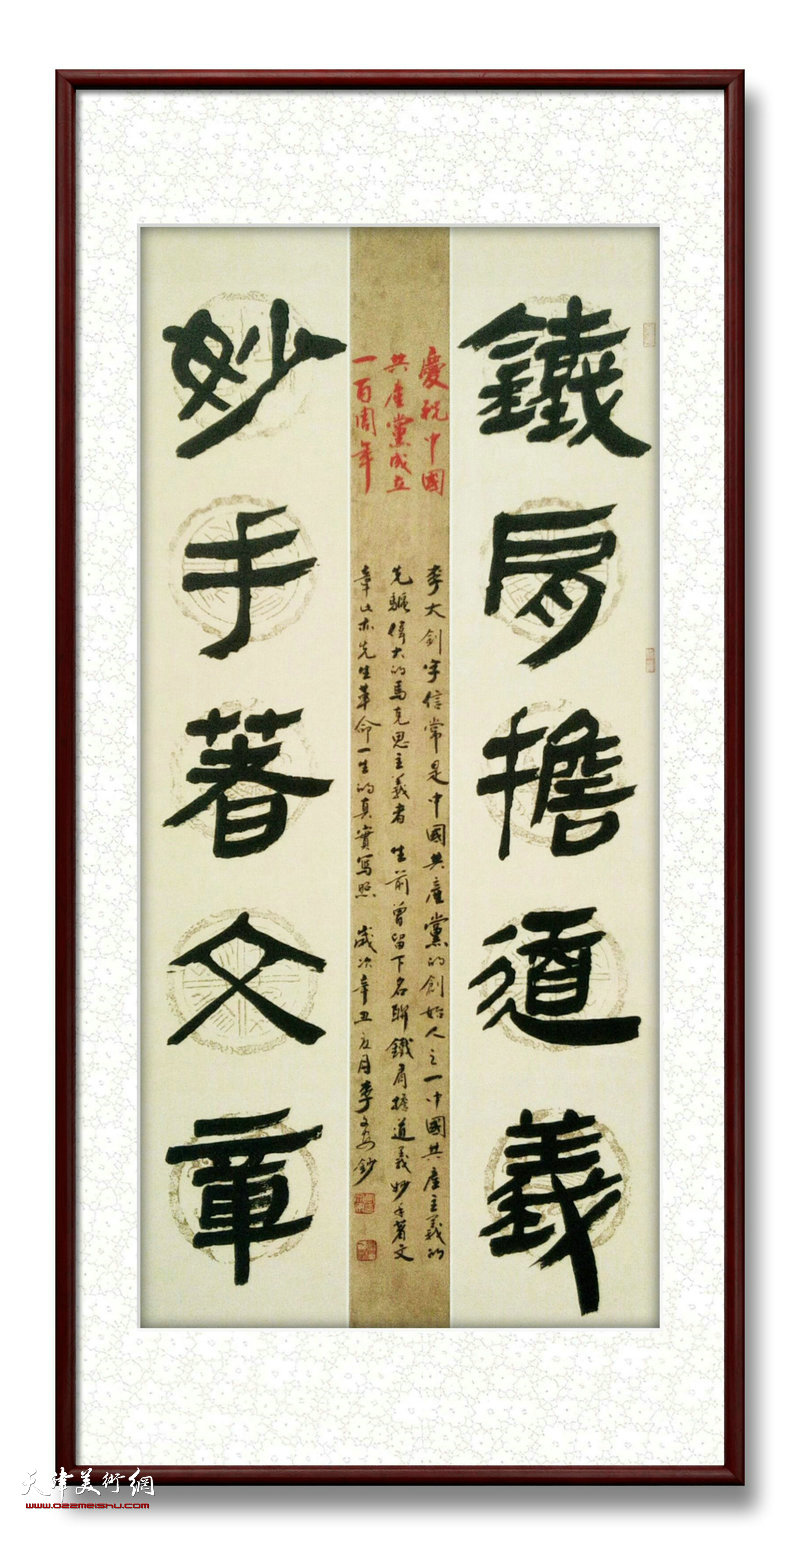 鐵肩擔道義
慶祝中國
共產黨成立
一百周年
李大釗字信常是中國共產黨的創始人之一中國共產主義的
先驅偉大的馬克思主義者 生前曾留下名聯鐵肩擔道義妙手著文
章此亦先生革命一生的真實寫照 歲次辛丑 月李
妙手著文章
天津美術網
www.022meishu.com